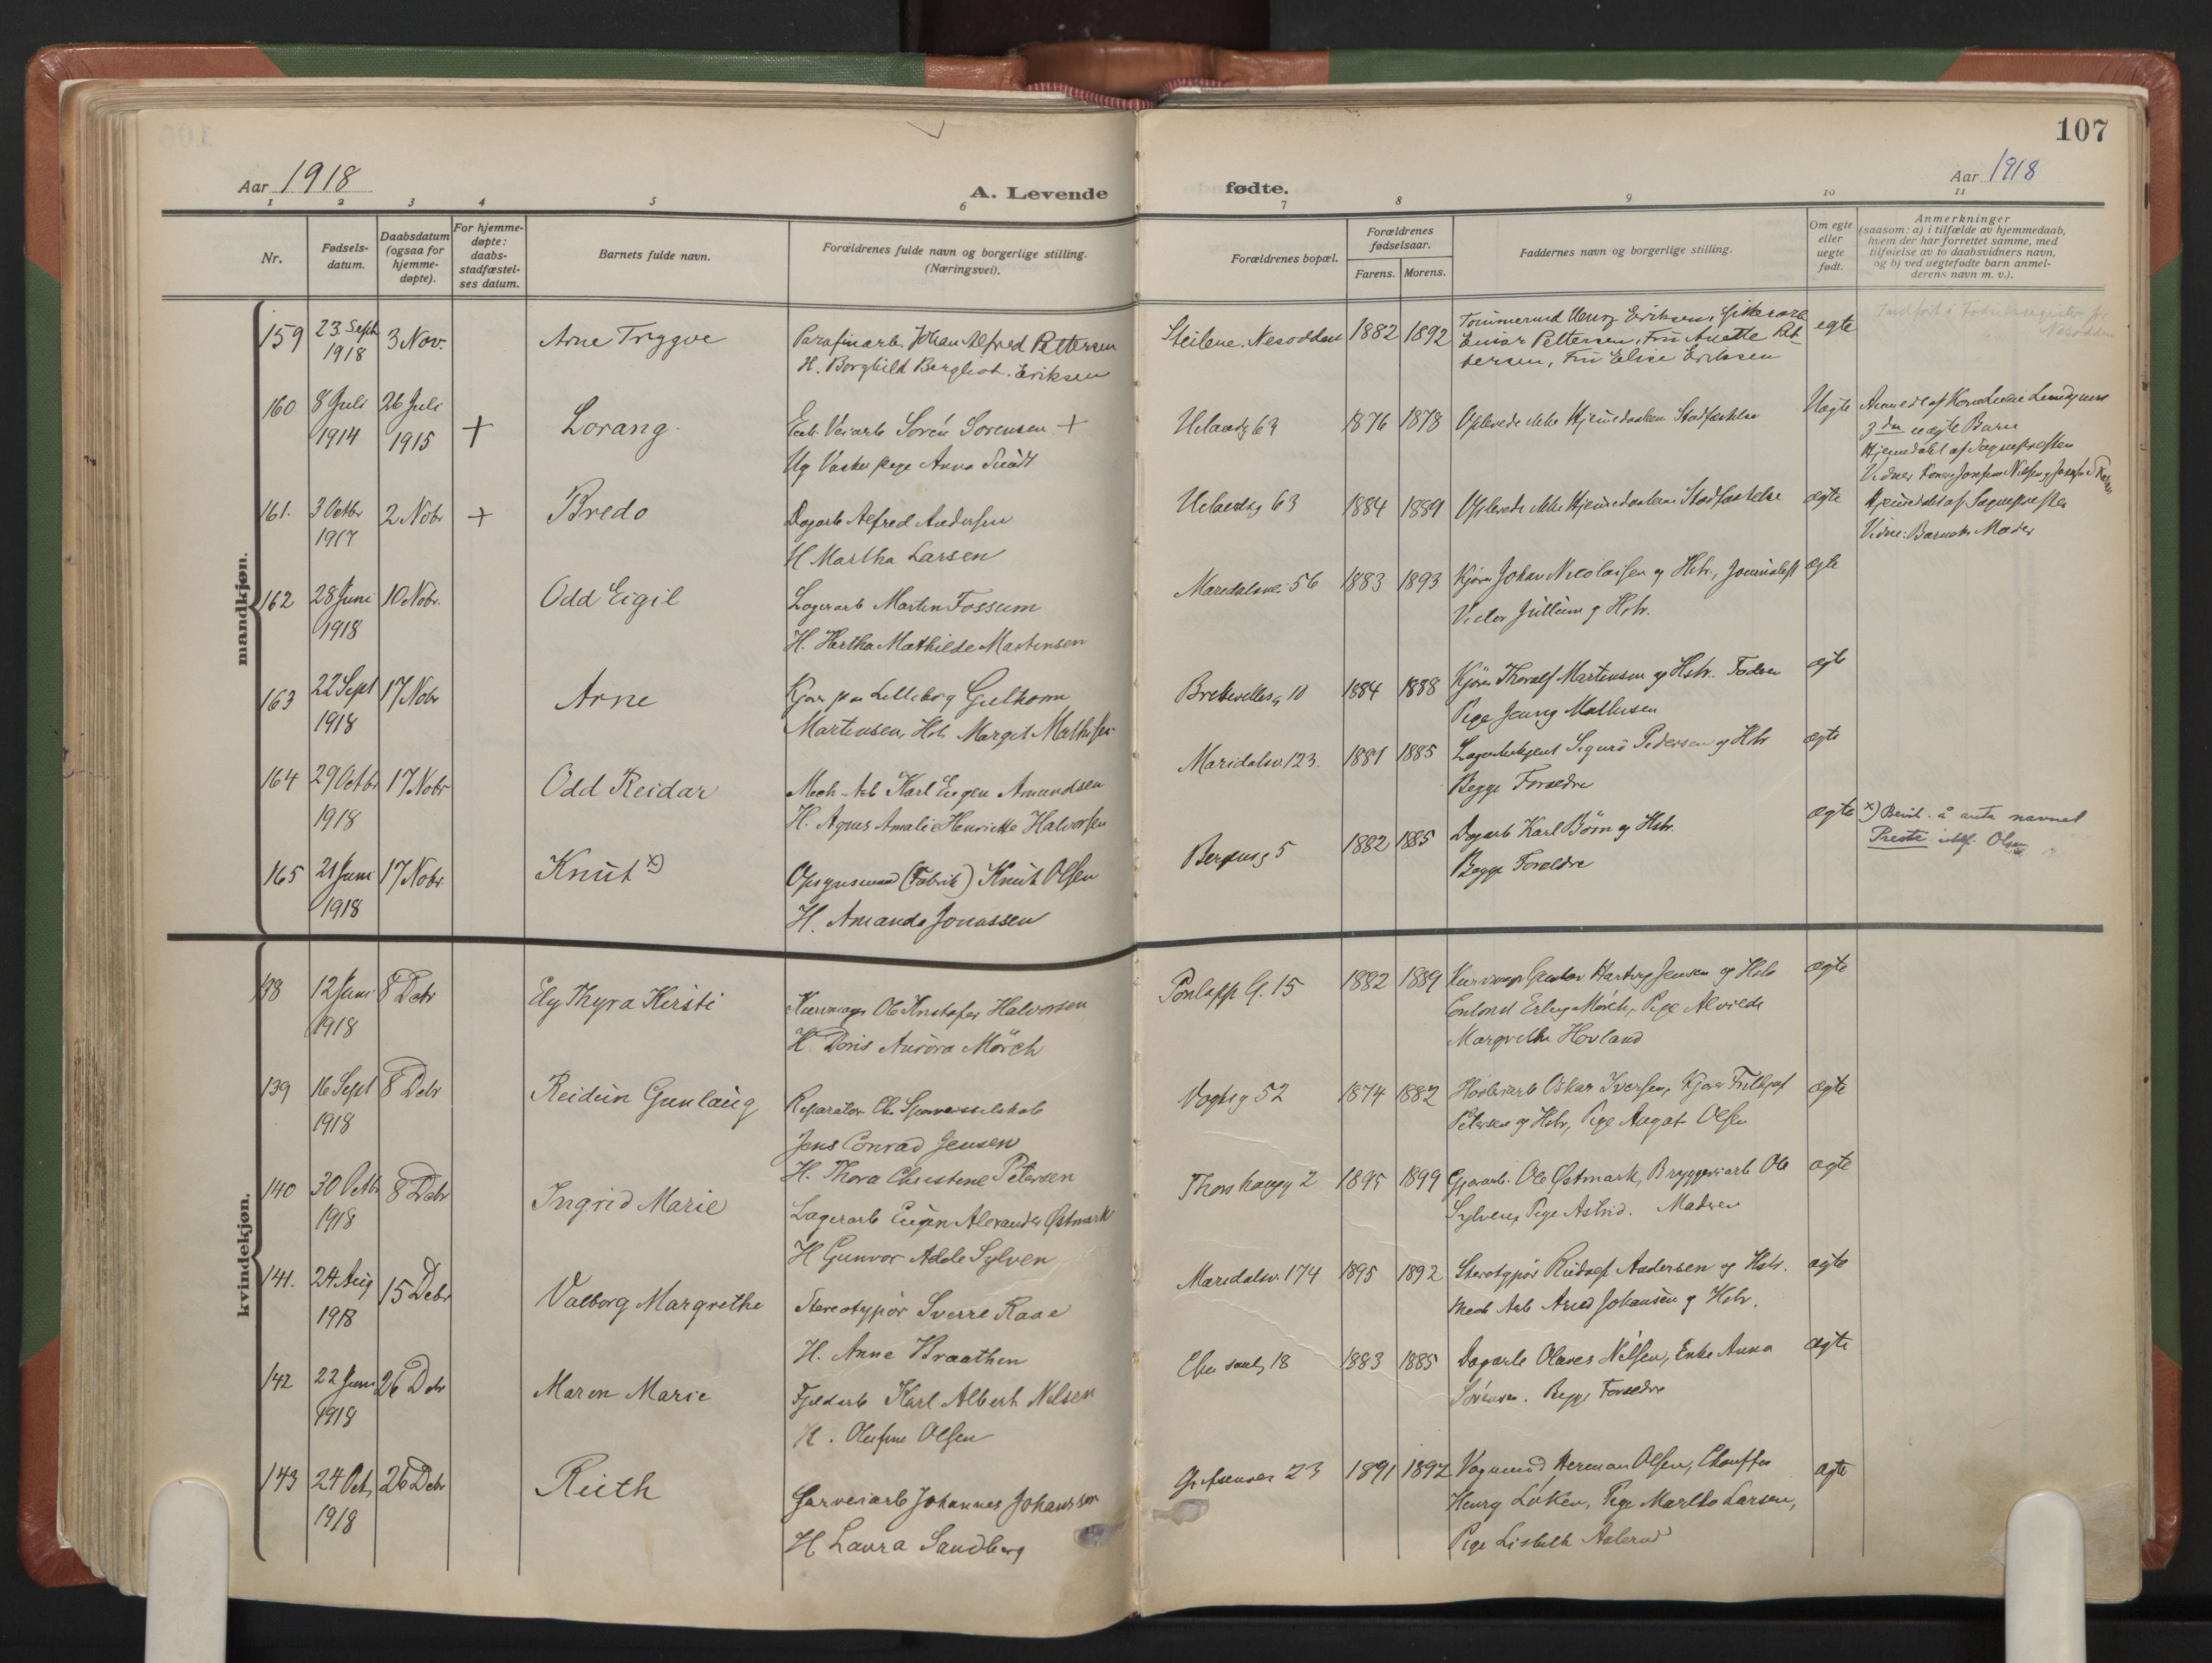 107
Aar 1918
A. Levende
fødte.
Aar 1918
1 2 3 4 5 6 7 8 9 10 11
Nr.
Fødsels-
datum.
Daabsdatum
(ogsaa for
hjemme-
døpte).
For hjemme-
døpte:
daabs-
stadfæstel-
ses datum.
Barnets fulde navn.
Forældrenes fulde navn og borgerlige stilling.
(Næringsvei).
Forældrenes bopæl.
Forældrenes
fødselsaar.
Farens. Morens.
Faddernes navn og borgerlige stilling.
Om egte
eller
uegte
født.
Anmerkninger
(saasom: a) i tilfælde av hjemmedaab,
hvem der har forrettet samme, med
tilføielse av to daabsvidners navn,
og b) ved uegtefødte barn anmel-
derens navn m. v.).
mandkjøn.
159 23 Sept 1918 3 Nov. Arne Tryggve
Parafinarb. Johan Alfred Pettersen
H. Borghild Bergliot Eriksen
Steilene, Nesodden 1882 1892
Tømmermd Henry Eriksen,
Einar Pettersen, Fru Anette Pet-
tersen, Fru Elise Eriksen
egte
160 8 Juli 1914 26 Juli 1915 + Lorang.
Sørén Sorensen +
Ug Vaskepige Anna
Uelandsg 63 1876 1878
Oplevede ikke Hjemmedaabens Stadfæstelse
Uægte
3die uægte Barn
Hjemmedøbt af Sognepresten
161. 3 Octbr 1917 2 Nobr + Bredo
Dagarb Alfred Andersen
H Martha Larsen
Uelandsg 63 1884 1889
Oplevede ikke Hjemmedaabens Stadfæstelse
ægte
Hjemmedøbt af Sognepresten
Vidne: Barnets Moder
162 28 Juni 1918 10 Nobr. Odd Eigil
Lagerarb Martin Fossum
H. Hertha Mathilde Martinsen
Maridalsvei 56 1883 1893
Kjører Johan Nicolaisen og Hstr., Journalist
Victor Jullum og Hstr.
ægte
163 22 Sept 1918 17 Nobr Arne
Kjører paa Lilleborg
Martinsen, Hstr Margit Mathisen
10 1884 1888
Kjører Thoralf Martinsen og Hstr. Faderen
Pige Jenny Mathisen
ægte
164 29 Octbr 1918 17 Nobr Odd Reidar
Mech. Arb Karl Eugen Amundsen
H. Agnes Amalie Henriette Halvorsen
Maridalsv. 123. 1881 1885
Sigurd Pedersen og Hstr
Begge Forældre
ægte
165 21 Juni 1918 17 Nobr. Knut x)
Opsynsmand (Fabrik) Knut Olsen
H. Amanda Jonassen
Bergensg 5 1882 1885
Dagarb Karl Börn og Hstr.
Begge Forældre
ægte
x) Bevil. å anta navnet
Preste istf. Olsen
kvindekjøn.
138 12 Juni 1918 8 Debr Ely Thyra Kirsti
Ole Kristofer Halvorsen
H Doris Aurora Mörch
15 1882 1889
Hartvig Jensen og Hstr
Erling Mörch, Pige Alvilde
Margrethe Hovland
ægte
139 16 Sept 1918 8 Debr Reidun Gunlaug
Reparatør Chr. Sporveisselskab
Jens Conrad Jensen
H. Thora Christine Petersen
Vogtsg 52 1874 1882
Høvleriarb Oskar Iversen, Kjører Fridtjof
Petersen og Hstr, Pige Aagot Olsen
ægte
140 30 Octbr 1918 8 Debr Ingrid Marie
Lagerarb Eugen Alexander Østmark
H Gunvor Adele Sylven
Thorshaugg 2 1895 1899
Ole Østmark, Bryggeriarb Ole
Sylven, Pige Astrid. Moderen
ægte
141. 24 Aug 1918 15 Debr Valborg Margrethe
Stereotypör Sverre Raae
H. Anne Braathen
Maridalsv. 174 1895 1892
Stereotypör Rudolf Andersen og Hstr.
Mech Arb Arvid Johansen og Hstr.
ægte
142 22 Juni 1918 26 Debr Maren Marie
Karl Albert Nilsen
H. Olufine Olsen
18 1883 1885
Dagarb Olaves Nilsen, Enke Anna
Sörensen. Begge Forældre
ægte
143 24 Oct. 1918 26 Debr Ruth
Garveriarb Johannes Johansson
H Laura Sandberg
Grefsenvei 23 1891 1892
Vognmand Herman Olsen, Chauffør
Henry Löken, Pige Martha Larsen,
Pige Lisbeth Aalerud
ægte